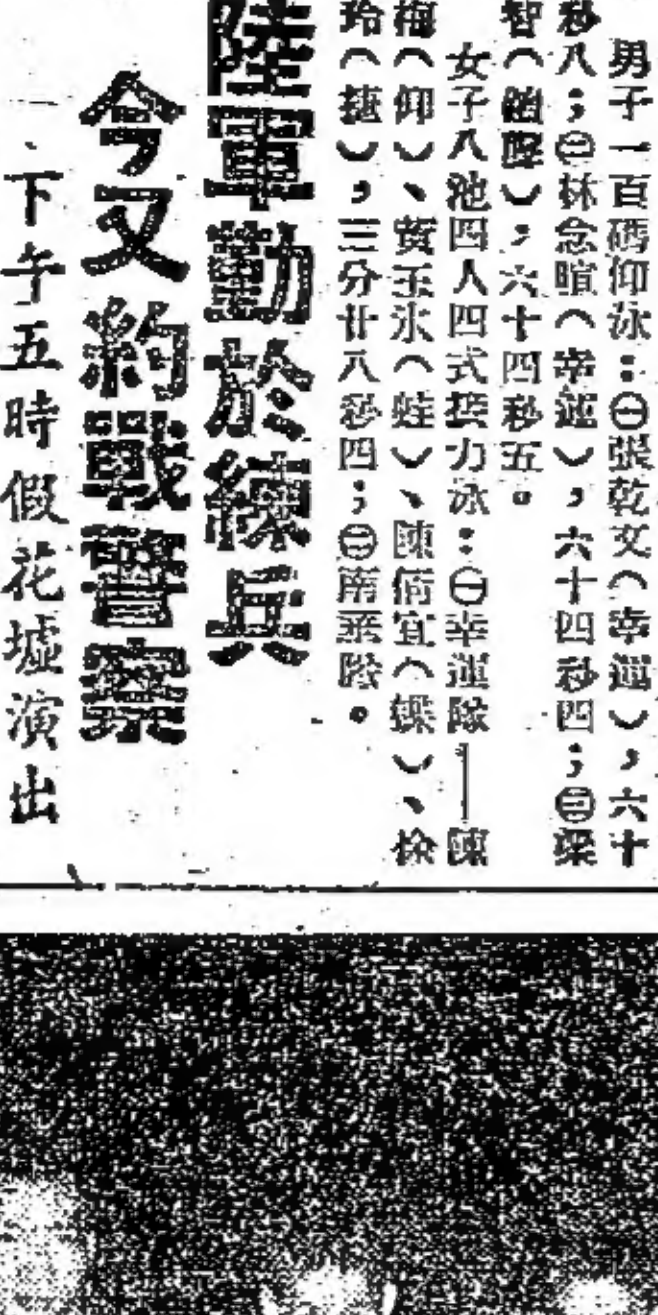 男子一百碼仰泳：㊀張乾文（幸運），六十
秒八；㊁林念暄（幸運），六十四秒四；㊂梁
智（），六十四秒五。
女子八池四人四式接力泳：㊀幸運隊——陳
梅（仰）、黃玉冰（蛙）、陳倩宜（蝶）、徐
玲（捷），三分廿八秒四；㊁南燕隊。
陸軍勤於練兵
今又約戰警察
下午五時假花墟演出